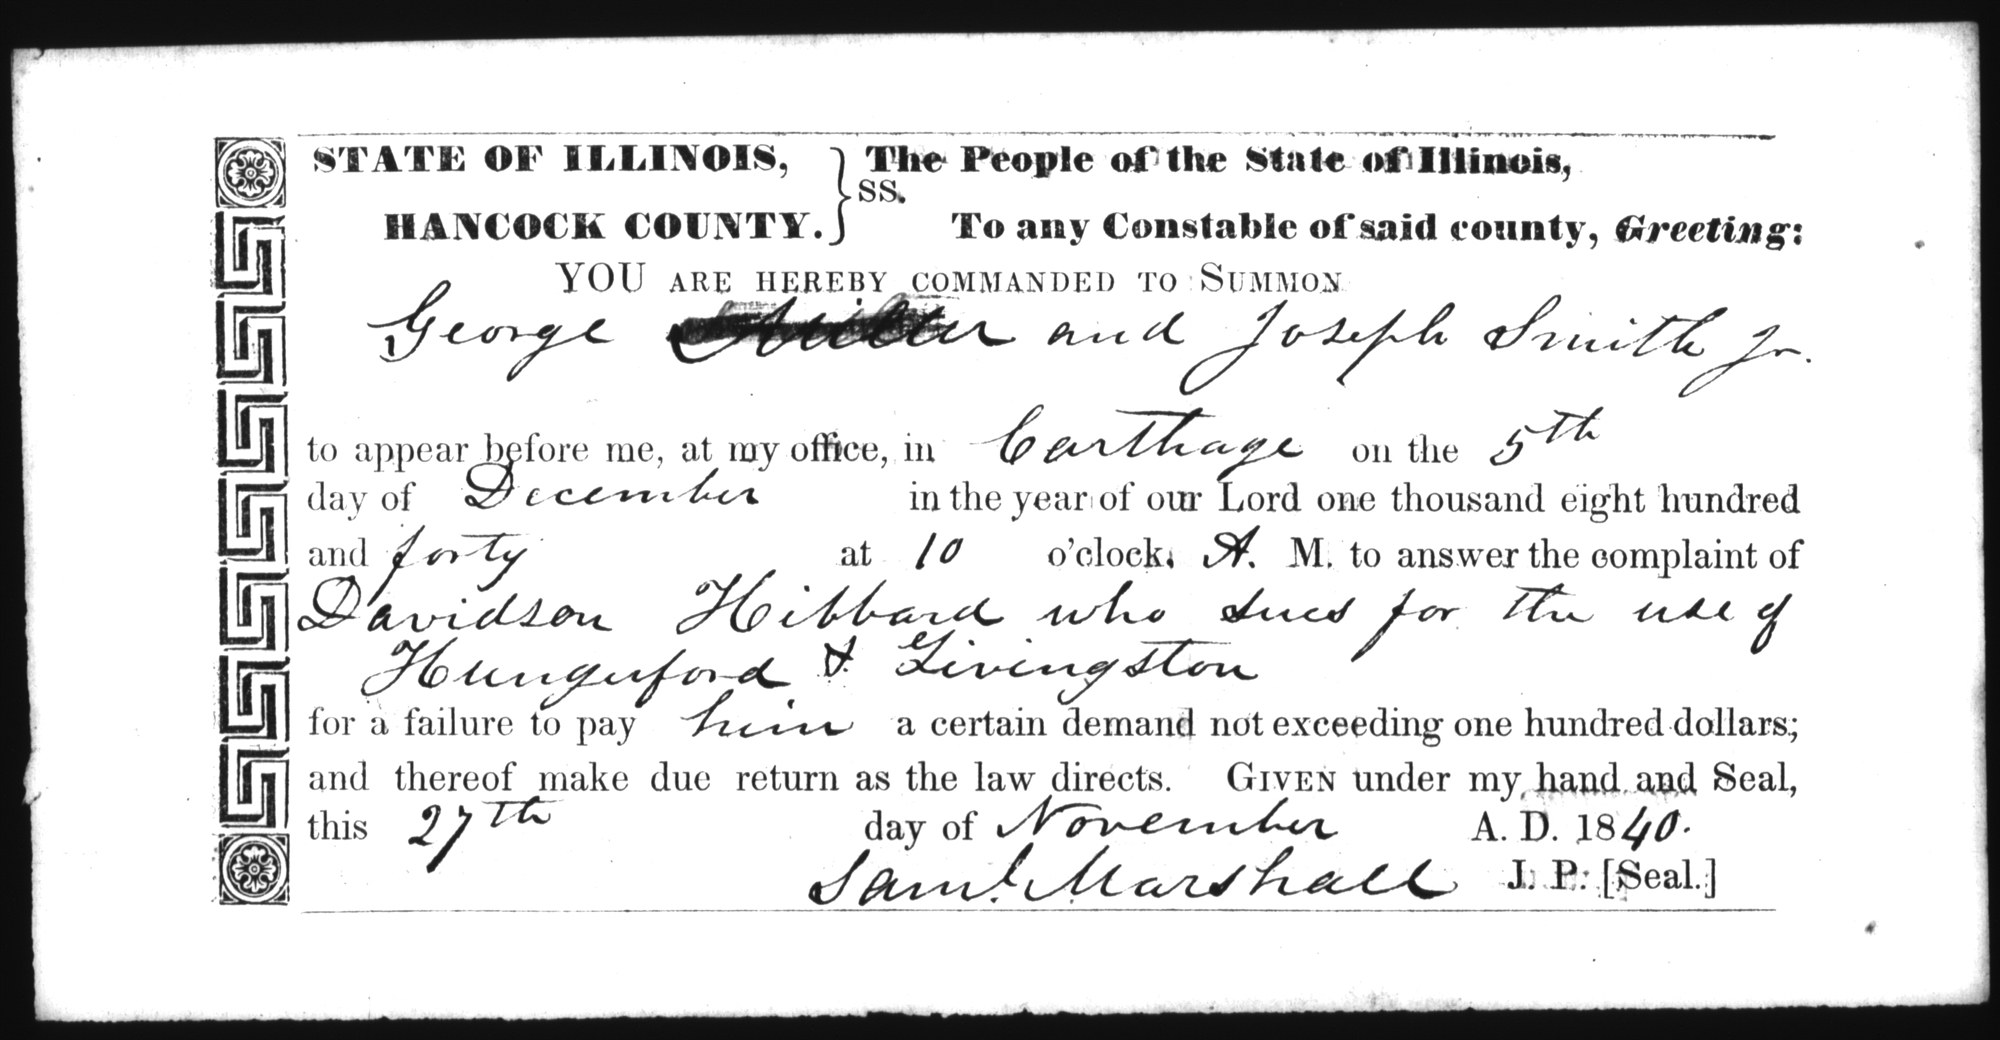 STATE OF ILLINOIS, } The People of the State of Illinois,
SS.
HANCOCK COUNTY. To any Constable of said county, Greeting:
YOU ARE HEREBY COMMANDED TO SUMMON
George Miller and Joseph Smith Jr.
to appear before me, at my office, in Carthage on the 5th
day of December in the year of our Lord one thousand eight hundred
and forty at 10 o'clock, A. M. to answer the complaint of
Davidson Hibbard who sues for the use of
Hungerford & Livingston
for a failure to pay him a certain demand not exceeding one hundred dollars;
and thereof make due return as the law directs. GIVEN under my hand and Seal,
this 27th day of November A. D. 1840.
Saml. Marshall J. P. [Seal.]